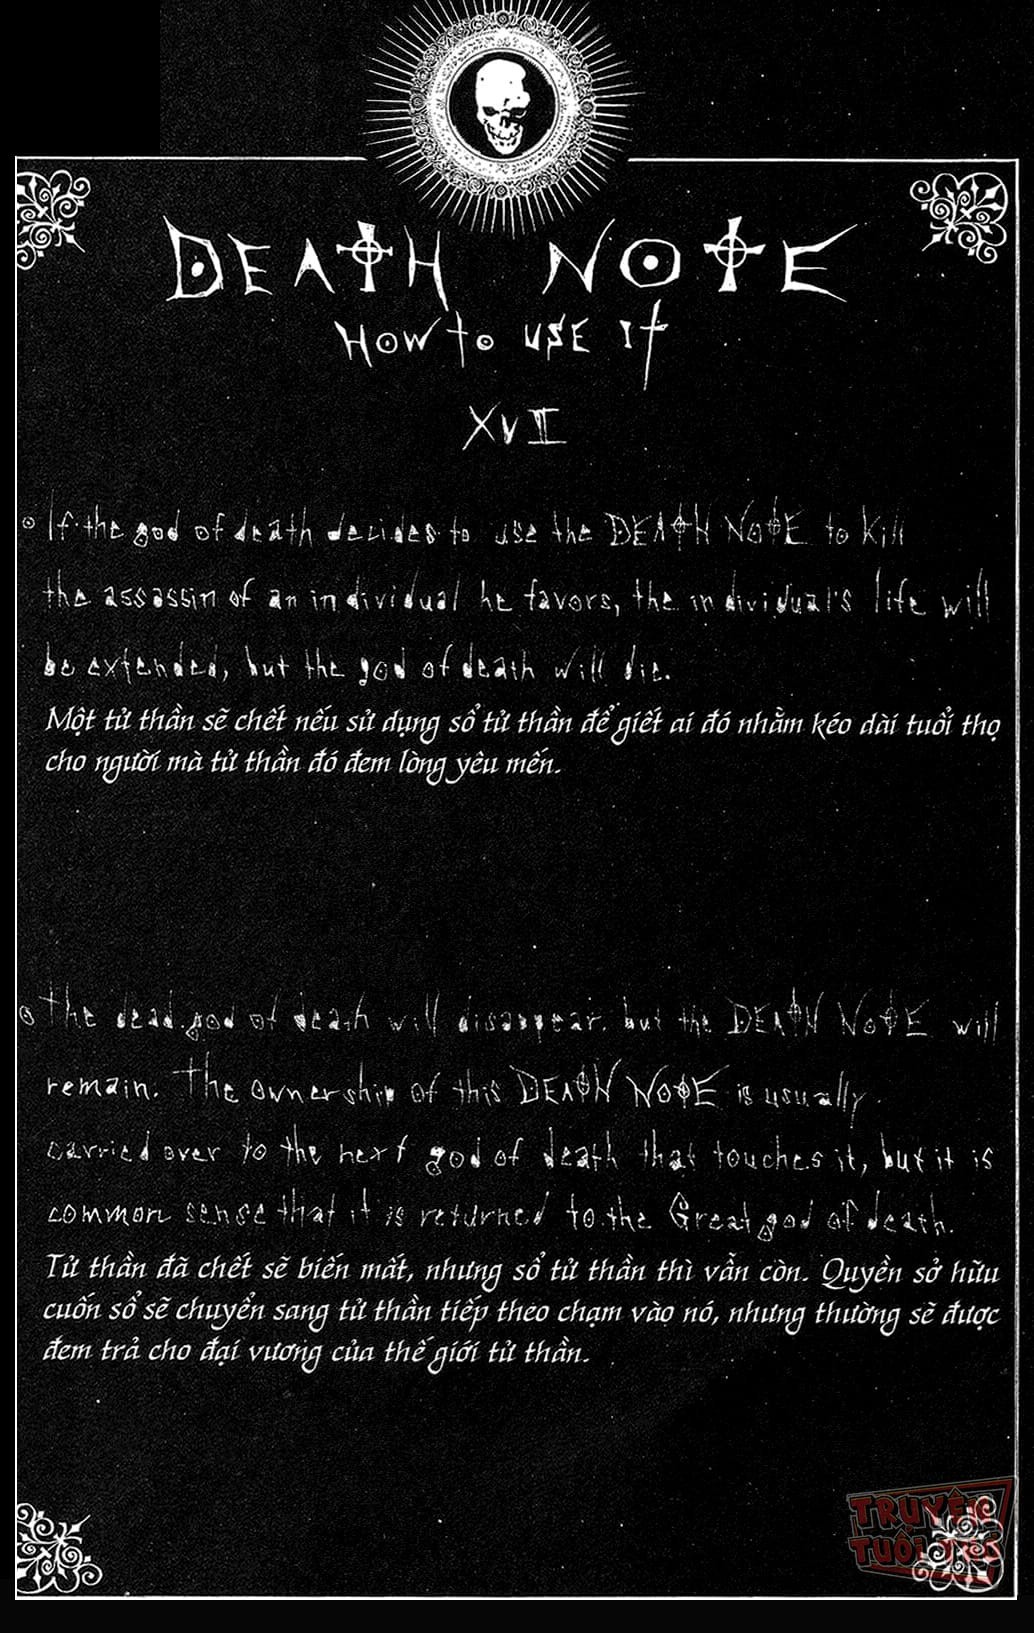 DEATH NOTE
HOW to USE It
XVII
If the god of death decides to use the DEATH NOTE to kill
the assassin of an individual he favors, the individual's life will
be extended, but the god of death will die.
Một tử thần sẽ chết nếu sử dụng sổ tử thần để giết ai đó nhằm kéo dài tuổi thọ
cho người mà tử thần đó đem lòng yêu mến.
The dead god of death will disappear, but the DEATH NOTE will
remain. The ownership of this DEATH NOTE is usually
carried over to the next god of death that touches it, but it is
common sense that it is returned to the Great god of death.
Tử thần đã chết sẽ biến mất, nhưng sổ tử thần thì vẫn còn. Quyền sở hữu
cuốn sổ sẽ chuyển sang tử thần tiếp theo chạm vào nó, nhưng thường sẽ được
đem trả cho đại vương của thế giới tử thần.
TRUYỆN
TUỔI